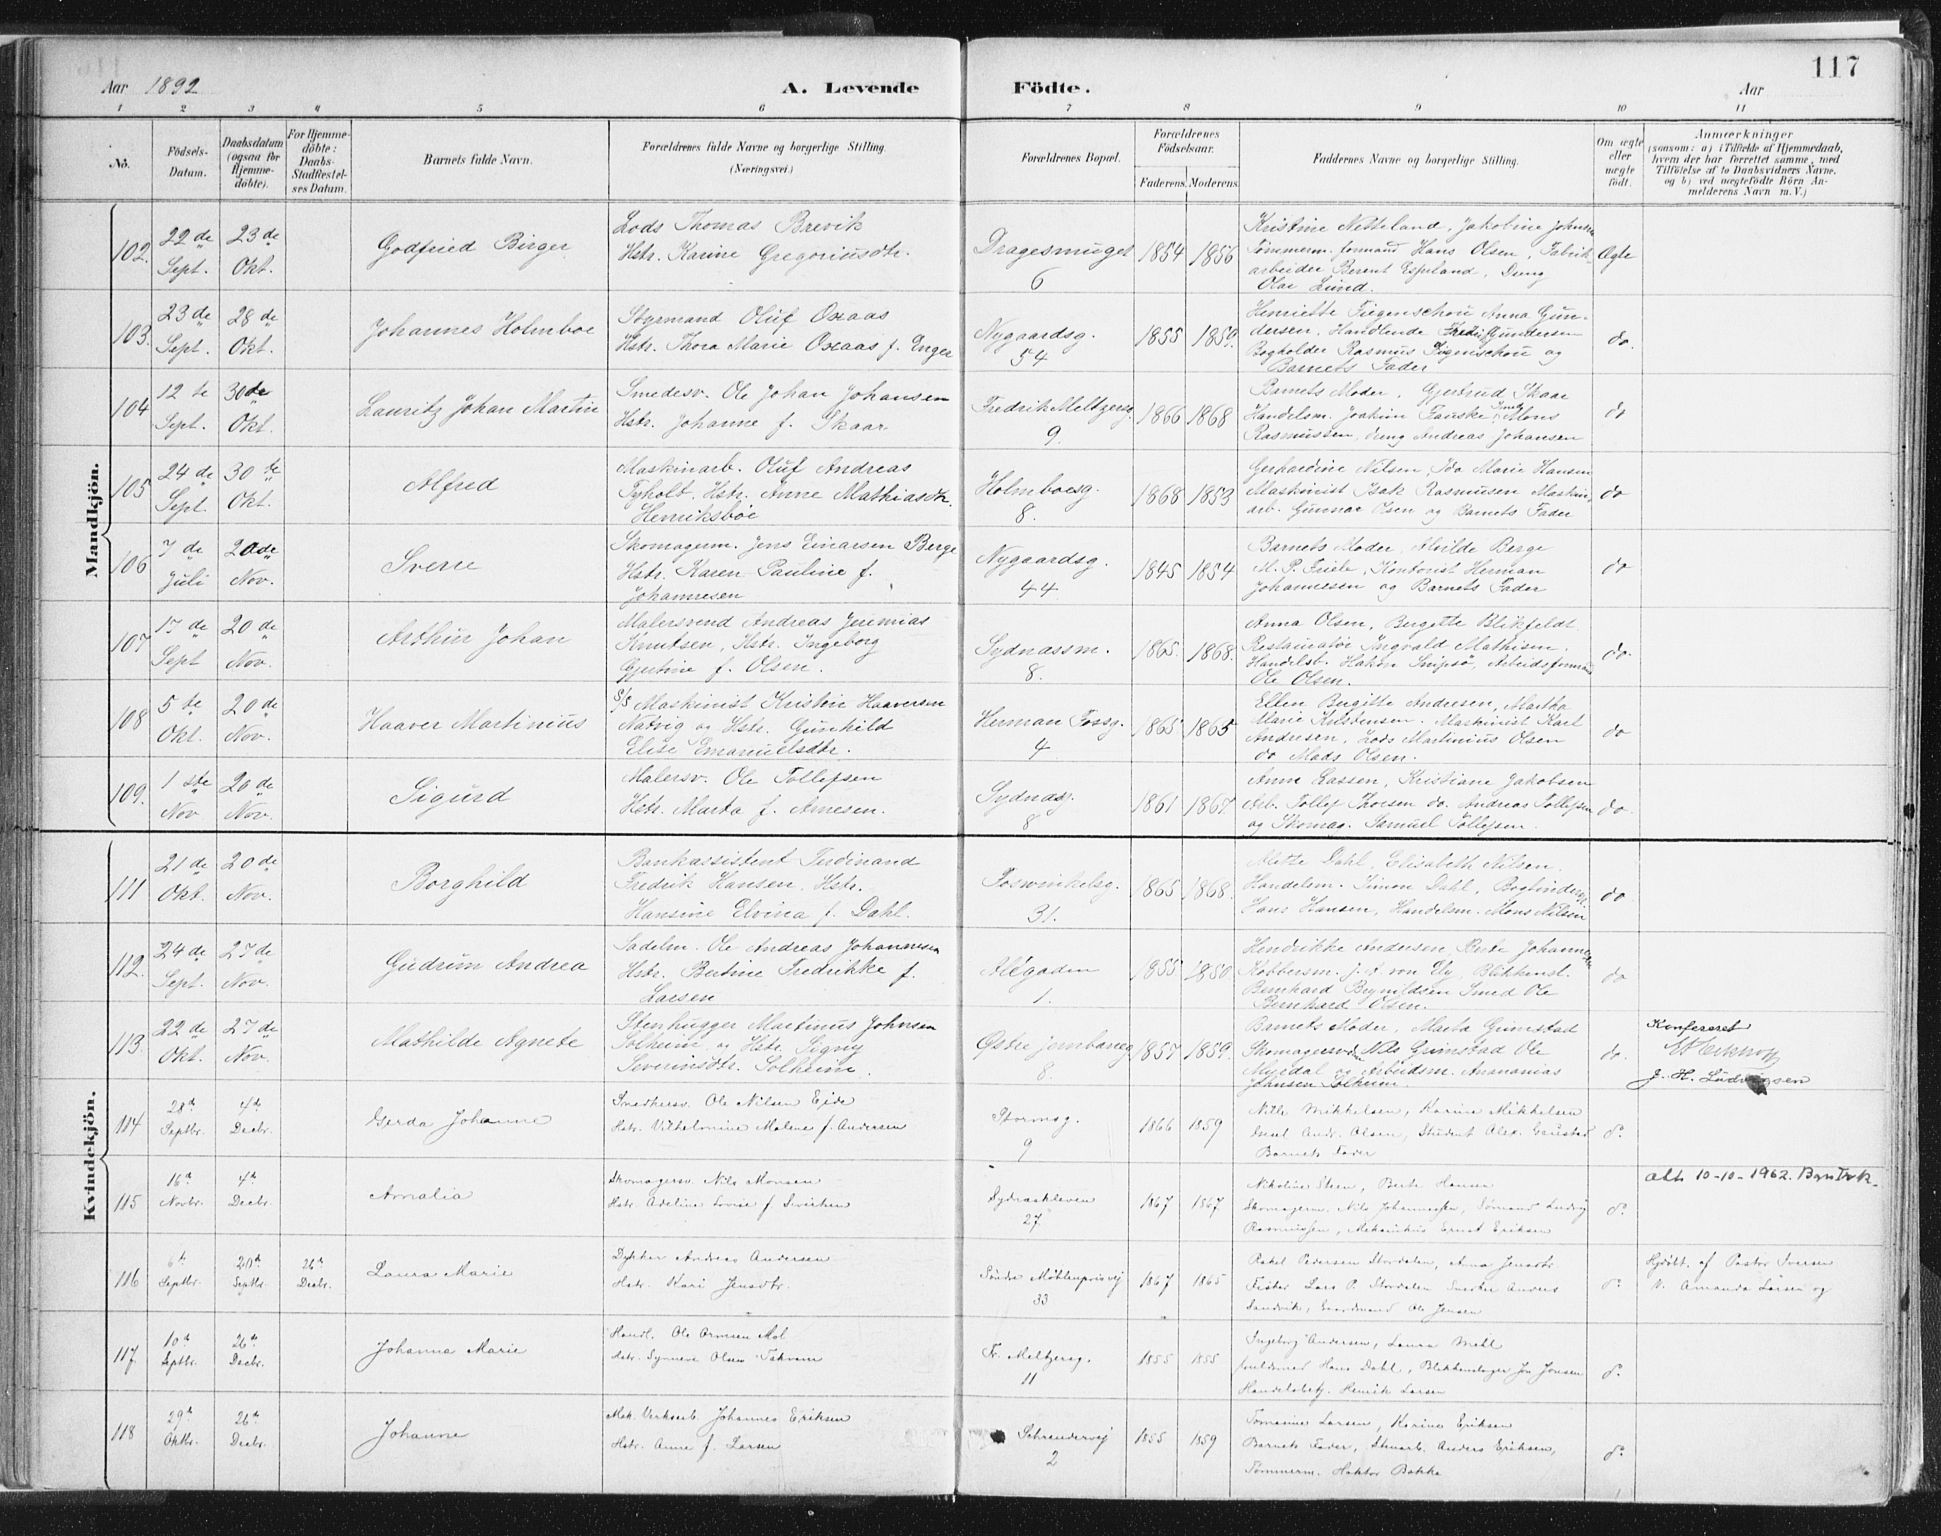 117
Aar 1892 A. Levende Födte. Aar
1 2 3 4 5 6 7 8 9 10 11
No. Födsels-Datum. Daabsdatum (ogsaa for Hjemme-döbte). For Hjemme-döbte: Daabs-Stadfæstel-ses Datum. Barnets fulde Navn. Forældrenes fulde Navne og borgerlige Stilling. (Næringsvei.) Forældrenes Bopæl. Forældrenes Födselsaar. Faderens. Moderens. Faddernes Navne og borgerlige Stilling. Om ægte eller uægte födt. Anmærkninger (saasom: a) i Tilfælde af Hjemmedaab, hvem der har forrettet samme, med Tilföielse af to Daabsvidners Navne, og b) ved uægtefödte Börn An-melderens Navn m. V.)
Mandkjön.
102. 22de Sept. 23de Okt. Godfried Birger
Lods Thomas Brevik
Hstr. Karine Gregoriusdtr.
Dragesmuget 6 1854 1856
Kristine Netteland, Jakobine Johnsen
Tømmerm. formand Hans Olsen, Fabrik-
arbeider Berent Espeland, Dreng
Olai Lund.
Ægte
103. 23de Sept. 28de Okt. Johannes Holmboe
Styrmand Oluf Oxaas
Hstr. Thora Marie Oxaas f. Enger
Nygaardsg. 54 1855 1859.
Henriette Figenschou Anna Gun-
dersen, Handlende Fredr. Gundersen
Bogholder Rasmus Figenschou og
Barnets Fader
do.
104 12te Sept. 30de Okt. Lauritz Johan Martin
Smedesv. Ole Johan Johansen
Hstr. Johanne f. Skaar
Fredrik Meltzersg. 9. 1866 1868
Barnets Moder, Gjertrud Skaar
Handelsm. Joakim Fauske Smed Mons
Rasmussen, dreng Andreas Johansen
do
105 24de Sept. 30te Okt. Alfred
Maskinarb. Oluf Andreas
Tyholt. Hstr. Anne Mathiasdtr.
Henriksbøe
Holmboesg. 8. 1868 1853
Gerhardine Nilsen, Ida Marie Hansen
Maskinist Isak Rasmusen Maskin-
arb. Gunnar Olsen og Barnets Fader
do
106 7de Juli 20de Nov. Sverre
Skomagerm. Jens Einarsen Berge
Hstr. Karen Pauline f.
Johannesen
Nygaardsg. 44 1845 1854
Barnets Moder, Alvilde Berge
M. P. Friele, Kontorist Herman
Johannesen og Barnets Fader
do
107 17de Sept 20de Nov. Arthur Johan
Malersvend Andreas Jeremias
Knutsen, Hstr. Ingeborg
Gjertine f. Olsen.
Sydnassm. 8. 1865. 1868.
Anna Olsen, Bergitte Blikfeldt
Restauratør Ingvald Mathisen.
Handelsb. Hakon Snipsø, Arbeidsformand
Ole Olsen.
do
108 5te Okt. 20de Nov. Haaver Martinius
S/S Maskinist Kristin Haaversen
Natvig og Hstr. Gunhild
Elise Emanuelsdtr.
Herman Fossg. 4 1865 1865
Ellen Birgitte Andresen, Martha
Marie Kristensen. Maskinist Karl
Andresen, Lods Martinius Olsen
do Mads Olsen.
do
109. 1ste Nov 20de Nov. Sigurd
Malersv. Ole Tollefsen
Hstr. Marta f. Arnesen.
Sydnasg. 8 1861 1867.
Anne Lassen, Kristiane Jakobsen
Arb. Tollef Thorsen do. Andreas Tollefsen
og Skomag. Samuel Tollefsen.
do
Kvindekjön.
111 21de Okt. 20de Nov. Borghild
Bankassistent Ferdinand
Fredrik Hansen. Hstr.
Hansine Elvina f. Dahl.
Foswinkelsg. 31. 1865 1868.
Mette Dahl, Elisabeth Nilsen.
Handelsm. Simon Dahl, Bogbinder
Hans Hansen, Handelsm. Mons Nilsen
do
112. 24de Sept. 27de Nov. Gudrun Andrea
Sadelm. Ole Andreas Johannesen
Hstr. Bertine Fredrikke f.
Larsen
Allégaden 1. 1855 1850
Hendrikke Andersen, Berte Johannesen
Kobbersm. J. F. von Ely, Blikkensl.
Bernhard Brynildsen Smed Ole
Bernhard Olsen.
do
113. 22de Okt. 27de Nov. Mathilde Agnete
Stenhugger Martinus Johnsen
Solheim og Hstr. Signy
Severinsdtr. Solheim.
Østre jernbaneg. 8. 1857 1859.
Barnets Moder, Marta Grimstad
Skomagersvden Nils Grimstad Ole
Myrdal og Arbeidsm. Anananias
Johnsen Solheim.
do.
Konfereret
J. H. Ludvigsen
114 28de Septbr. 4de Decbr. Gerda Johanne
Snedkersv. Ole Nilsen Eide
Hstr. Vilhelmine Malene f. Andersen
Stormsg. 9 1866 1859
Nille Mikkelsen, Karine Mikkelsen
Andr. Olsen, Student Alex. Grimstad
Barnets Fader
do
115 16de Novbr. 4de Decbr. Amalia
Skomagersv. Nils Monsen
Hstr. Adeline Lovise f. Sivertsen
Sydneskleven 27. 1867 1867
Nikoline Steen, Berte Hansen
Skomagerm. Nils Johannessen, Sømand Ludvig
Rasmussen, Mekanikus Ernst Eriksen
do
att. 10-10-1962.
116 6te Septbr. 20de Septbr. 26de Decbr. Laura Marie
Dykker Andreas Andersen
Hstr. Kari Jensdtr.
Søndre Møhlenprisvej 33 1867 1865
Rakel Pedersen Stordalen, Anna Jensdtr
Fisker Lars P. Stordalen Snedker Anders
Sandvik, Gaardmand Ole Jensen
do
Hjdøbt. af Pastor Iversen
V. Amanda Larsen og
117. 10de Septbr. 26de Decbr. Johanna Marie
Handl. Ole Ormsen Mol
Hstr. Synneve Olsen Takvam
Fr. Meltzersg. 11 1855 1855
Ingeborg Andersen, Laura Mehl
Hans Dahl, Blikkenslager Jon Jonsen
Handelsbetj. Henrik Larsen
do
118 29de Oktbr. 26de Decbr. Johanne
Mek. Verksarb. Johannes Eriksen
Hstr. Anne f. Larsen
Schrendervej 2 1855 1859
Tomasine Larsen, Karine Eriksen
Barnets Fader, Stenarb. Anders Eriksen,
Tømmerm. Haktor Bakke
do